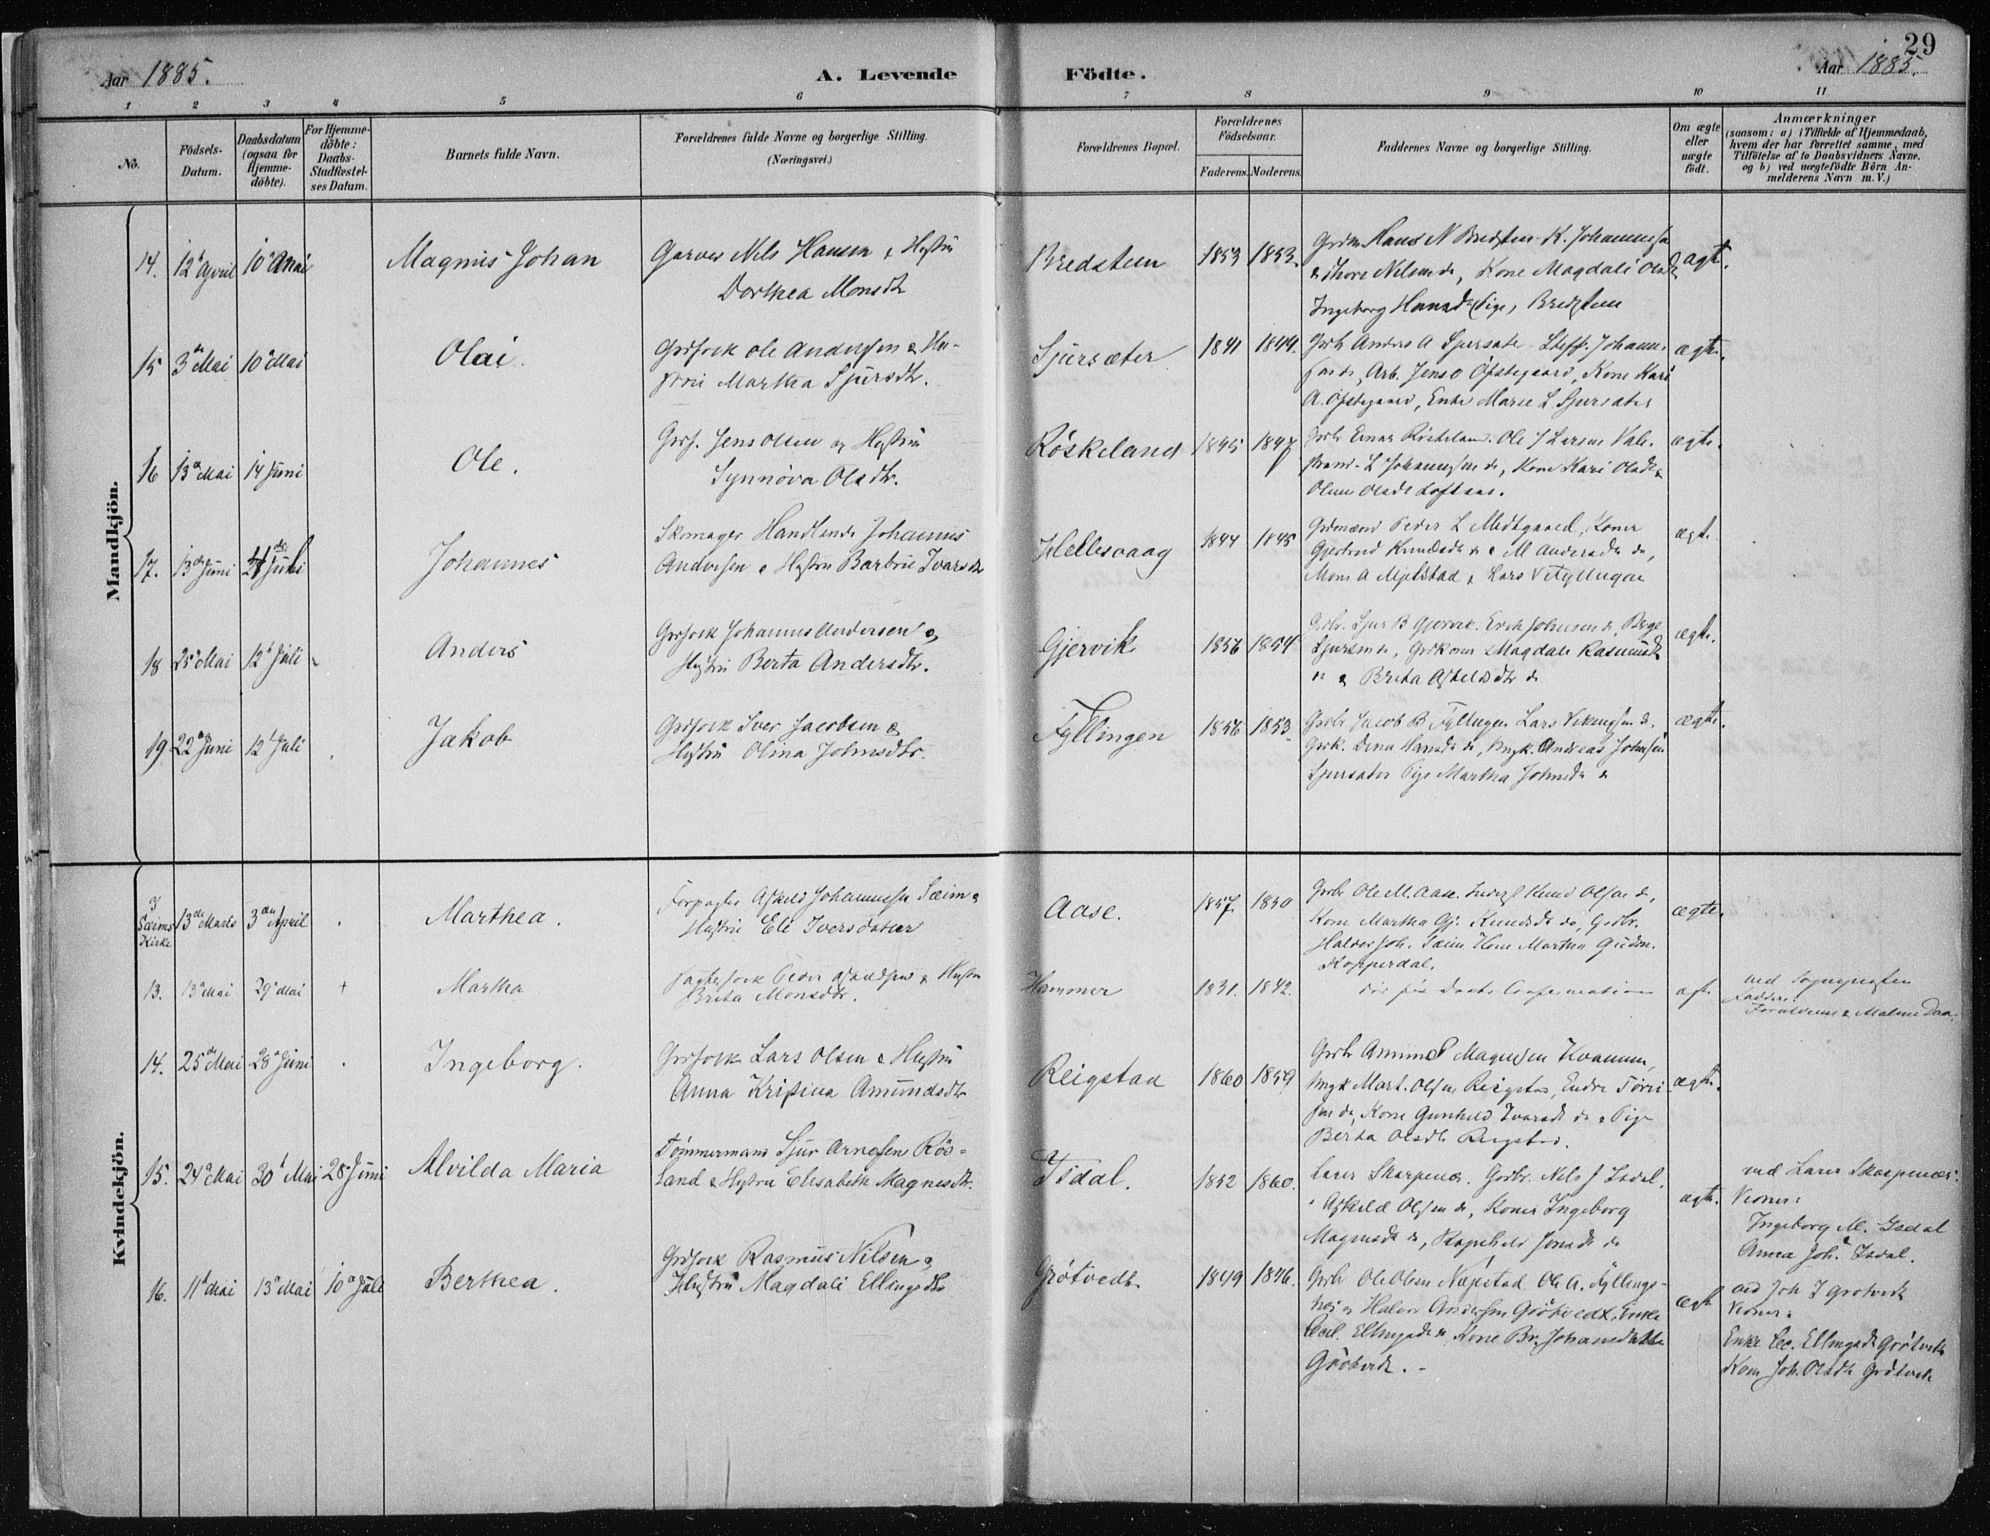 29
Aar 1885.
A. Levende
Födte.
Aar 1885.
1 2 3 4 5 6 7 8 9 10 11
No.
Födsels-
Datum.
Daabsdatum
(ogsaa for
Hjemme-
döbte).
For Hjemme-
döbte:
Daabs-
Stadfæstel-
ses Datum.
Barnets fulde Navn.
Forældrenes fulde Navne og borgerlige Stilling.
(Næringsvei.)
Forældrenes Bopæl.
Forældrenes
Födselsaar.
Faderens. Moderens.
Faddernes Navne og borgerlige Stilling.
Om ægte
eller
uægte
födt.
Anmærkninger
(saasom: a) i Tilfælde af Hjemmedaab,
hvem der har forrettet samme, med
Tilföielse af to Daabsvidners Navne.
og b) ved uægtefödte Börn An-
melderens Navn m.V.)
Mandkjön.
14. 12 April 10 Mai
Magnus Johan
Garver Nils Hansen & Hustru
Dorthea Monsdtr
Bredstein
1853 1853.
Hans N Bredstein K. Johannesen
Thore Nilsen do, Kone Magdali Olsdtr
Ingeborg Hansdtr Pige, Bredstein
ægt.
15 3de Mai 10 Mai
Olai.
Grdfolk Ole Andersen & Hu-
stru Martha Sjursdtr.
Sjursæter
1841 1849.
Grbr Anders A Sjursæter Steff. Johann-
sen do, Arb. Jens O Øfstegaard, Kone Kari
A. Øfstegaard, Enke Marie L Sjursæter
ægte.
16 13de Mai 14 Juni
Ole.
Grdf. Jens Olsen og Hustru
Synnøva Olsdtr.
Röskeland
1845 1847
Grbr Einar Röskeland. Ole J Larsen Vale-
strand L Johannesen do, Kone Kari Olsdtr &
Oline Olsdtr Loftaas.
ægte.
17. 13de Juni 4de Juli
Johannes
Skomager Handlende Johannes
Andersen & Hustru Barbru Ivarsdtr
Hellesvaag
1844 1845
Grdmænd Peder L Midtgaard, Koner
Gjertrud Knudsdtr do & M Andersdtr do,
Mons A Mjelstad & Lars V Fyllingen
ægte.
18 25 Mai 12 Juli
Anders
Grdfolk Johannes Andersen &
Hustru Berta Andersdtr.
Gjervik
1856 1854
Grbr. Sjur B Gjervik. Erik Johnsen do, Børge
Sjursen do, Grdkoner Magdali Rasmusdtr
do & Brita Askeldsdtr do
ægte.
19 22 Juni 12 Juli
Jakob
Grdfolk Iver Jacobsen &
Hustru Olina Johnsdtr.
Fyllingen
1856 1853.
Grbr Jacob B Fyllingen Lars Vikingsen do.
Grdk. Dina Hansdtr do, Ungk. Andreas Johnsen
Sjursæter Pige Martha Johnsdtr do
ægte.
Kvindekjön.
I
Sæims
Kirke
13de Marts 3die April
Marthea.
Forpagter Askeld Johannesen Sæim &
Hustru Eli Iversdatter
Aase.
1857 1850
Grbr Ole M. Aase. Knud Olsen do,
Kone Martha Gj. Knudsdtr do, Grdbr.
Halver Joh. Sæim Kone Martha Gudm.
Kopperdal.
ægte.
13. 13 Mai 29 Mai +
Martha
Peder & Hustru
Brita Monsdtr.
Hammer
1831. 1842.
död för Daabs Confirmation
ægte
ved Sognepresten
Faddere:
Forældrene & Malene Daa.
14. 25de Mai 28 Juni
Ingeborg.
Grdfolk Lars Olsen & Hustru
Anna Kristina Amundsdtr
Reigstad
1860 1859
Grbr Amund Magnesen Kvamme,
Ungk Mart. Olsen Reigstad, Endre Torri-
sen do, Kone Gunhild Ivarsdtr do & Pige
Berta Olsdtr Reigstad.
ægte.
15. 24 Mai 30 Mai 28 Juni
Alvilda Maria
Tömmermand Sjur Arnesen Rös-
land & Hustru Elisabeth Magnesdtr.
Isdal.
1852 1860.
Lærer Skarpenæs. Grdbr. Nils J Isdal.
Askeld Olsen do, Koner Ingeborg
Magnesdtr do, Ragnhild Jonsdtr do
ægte.
ved Lærer Skarpenæs:
Vidner:
Ingeborg M. Isdal
Anna Joh. Isdal.
16. 11 Mai 13 Mai 10 Juli
Berthea.
Grdfolk Rasmus Nilsen &
Hustru Magdali Ellingsdtr
Grötvedt.
1849 1846.
Grbr Ole Olsen Næpstad Ole A. Fyllings-
nes & Halvor Andersen Grötvedt, Enke
Cecil. Ellingsdtr & Kone Br. Johansdatter
Grötvedt. -
ægte
ved Joh I Grotvedt
Vidner:
Enke Cec. Ellingsdtr Grötvedt
Kone Joh. Olsdtr Grötvedt